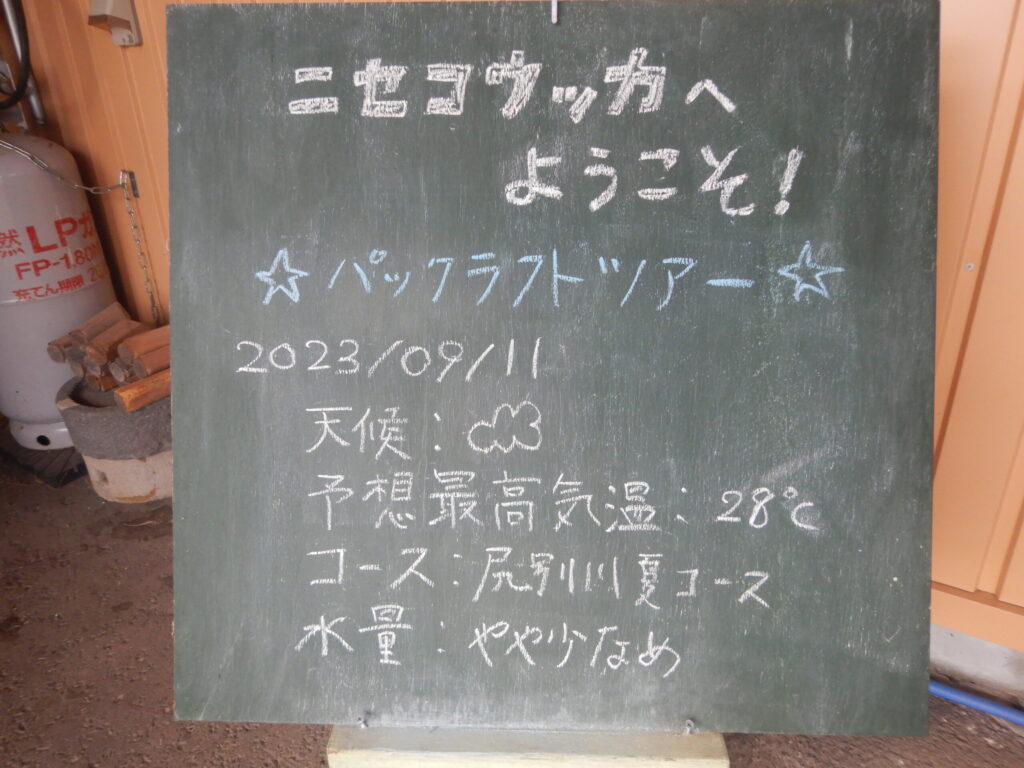 ニセコウッカへ
ようこそ!
☆パックラフトツアー☆
2023/09/11
天候:
予想最高気温:28℃
コース:尻別川夏コース
水量:やや少なめ
然LPガ
FP-1.80M
充てん期限 20